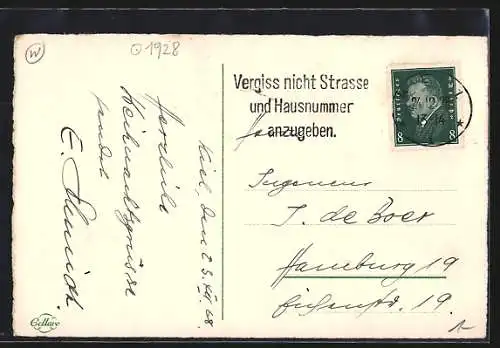 W
1928
Kiel, den 23. XII. 28.
Herzliche
Weihnachtsgrüsse
sendet
E. Schmidt.
Vergiss nicht Strasse
und Hausnummer
anzugeben.
Deutsches Reich
8 8
24.12.
13-14
Herrn
Ingenieur
J. de Boer
Hamburg 19
Eichenstr. 19.
Cellaro